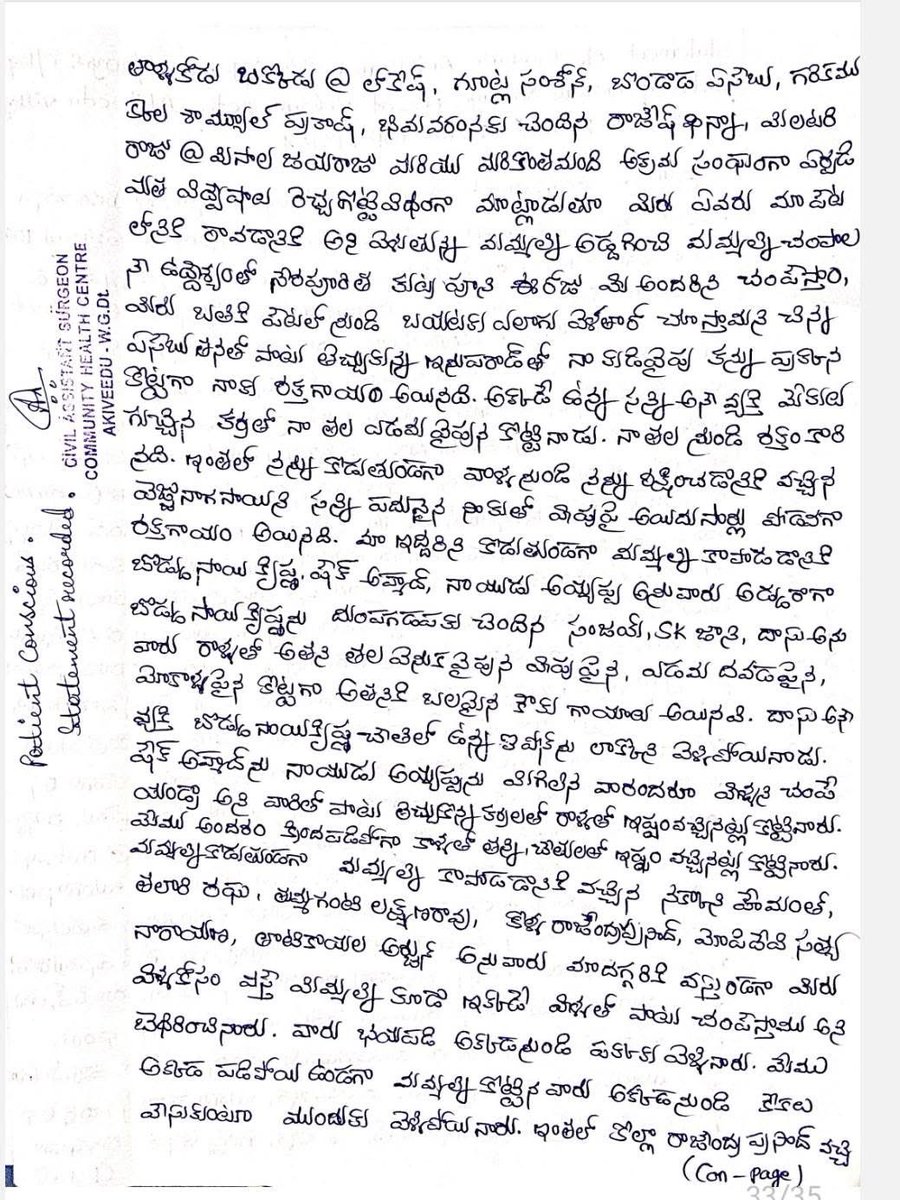 తాళ్ళకోడు బుక్కొడు @ లోకేష్, గూట్ల సంతోష్, బొండాడ ఏసేబు, గరికము
క్కల శామ్యూల్ ప్రకాష్, భీమవరంనకు చెందిన రాజేష్ ఖన్నా, మిలటరి
రాజు @ మీసాల జయరాజు మరియు మరికొంతమంది అక్రమ సంఘంగా ఏర్పడి
మత విద్వేషాలు రెచ్చగొట్టేవిధంగా మాట్లాడుతూ మీరు ఎవరు మా పేట
లోనికి రావడానికి అని వెళుతున్న మమ్మల్ని అడ్డగించి మమ్మల్ని చంపాల
నే ఉద్దేశ్యంతో నేరపూరిత కుట్ర పూని ఈరోజు మీ అందరిని చంపేస్తాం,
మీరు బతికి పేటలో నుండి బయటకు ఎలాగు వెళతారో చూస్తామని చిన్న
ఏసేబు తనతో పాటు తెచ్చుకున్న ఇనుపరాడ్‌తో నా కుడివైపు కన్ను ప్రక్కన
కొట్టగా నాకు రక్తగాయం అయినది. అక్కడే ఉన్న సన్ని అనే వ్యక్తి మేకులు
గుచ్చిన కర్రతో నా తల ఎడమ వైపున కొట్టినాడు. నా తల నుండి రక్తం కారి
నది. ఇంతలో నన్ను కొడుతుండగా వాళ్ళనుండి నన్ను రక్షించడానికి వచ్చిన
వెజ్జు నాగసాయిని సన్ని పదునైన సాకుతో వీపుపై అయిదుసార్లు పొడవగా
రక్తగాయం అయినది. మా ఇద్దరిని కొడుతుండగా మమ్మల్ని కాపాడడానికి
బొడ్డు సాయి క్రిష్ణ, షేక్ అహ్మద్, నాయుడు అయ్యప్ప అనువారు అడ్డురాగా
బొడ్డు సాయిక్రిష్ణను దుంపగడపకు చెందిన సంజయ్, SK జాని, దాసు అను
వారు రాళ్ళతో అతని తల వెనుక వైపున వీపు పైన, ఎడమ దవడపైన,
మోకాళ్ళపైన కొట్టగా అతనికి బలమైన గాయాలు అయినవి. దాసు అనే
వ్యక్తి బొడ్డు సాయిక్రిష్ణ చేతిలో ఉన్న ఐఫోన్‌ను లాక్కొని వెళ్ళిపోయినాడు.
షేక్ అహ్మద్‌ను నాయుడు అయ్యప్పను మిగిలిన వారందరూ వీళ్ళని చంపే
యండ్రా అని వారితో పాటు తెచ్చుకొన్న కర్రలతో రాళ్ళతో ఇష్టంవచ్చినట్లు కొట్టినారు.
మేము అందరం క్రిందపడిపోగా కాళ్ళతో తన్ని, చేతులతో ఇష్టం వచ్చినట్లు కొట్టినారు.
మమ్మల్ని కొడుతుండగా మమ్మల్ని కాపాడడానికి వచ్చిన హేమంత్,
తలారి రఘు, తమ్మగంటి లక్ష్మణరావు, కొళ్ళ రాజేంద్రప్రసాద్, మోపిదేవి సత్య
నారాయణ, తాటికాయల అర్జున్ అనువారు మాదగ్గరికి వస్తుండగా మీరు
వీళ్ళకోసం వస్తే మిమ్మల్ని కూడా ఇక్కడే వీళ్ళతో పాటు చంపేస్తాము అని
బెదిరించినారు. వారు భయపడి అక్కడనుండి పక్కకు వెళ్ళినారు. మేము
అక్కడ పడిపోయి ఉండగా మమ్మల్ని కొట్టిన వారు అక్కడనుండి కేకలు
వేసుకుంటూ ముందుకు వెళ్ళిపోయినారు. ఇంతలో కొల్లా రాజేంద్ర ప్రసాద్ వచ్చి
(Con - Page)
33/35
Patient Conscious.
Statement recorded.
CIVIL ASSISTANT SURGEON
COMMUNITY HEALTH CENTRE
AKIVEEDU - W.G.Dt.